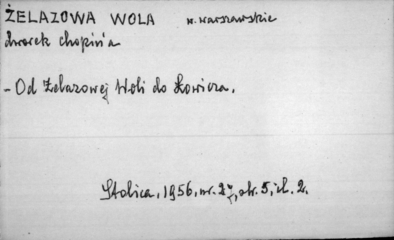 ŻELAZOWA WOLA w. warszawskie
dworek Chopin'a
- Od Żelazowej Woli do Łowicza.
Stolica, 1956, nr. 2, str. 5, il. 2.